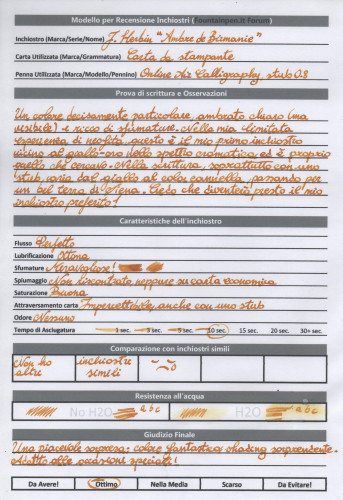 Modello per Recensione Inchiostri (fountainpen.it Forum)
Inchiostro (Marca/Serie/Nome) J. Herbin "Ambre de Birmanie"
Carta Utilizzata (Marca/Grammatura) Carta da stampante
Penna Utilizzata (Marca/Modello/Pennino) Online Air Calligraphy stub 0.8
Prova di scrittura e Osservazioni
Un colore decisamente particolare, ambrato chiaro (ma
visibile) e ricco di sfumature. Nella mia limitata
esperienza di neofita, questo è il mio primo inchiostro
vicino al giallo-oro dello spettro cromatico ed è proprio
quello che cercavo. Nella scrittura, soprattutto con uno
stub, varia dal giallo al color cannella, passando per
un bel terra di Siena. Credo che diventerà presto il mio
inchiostro preferito!
Caratteristiche dell'inchiostro
Flusso Perfetto
Lubrificazione Ottima
Sfumature Meravigliose!
Spiumaggio Non riscontrato neppure su carta economica
Saturazione Buona
Attraversamento carta Impercettibile, anche con uno stub
Odore Nessuno
Tempo di Asciugatura 1 sec. 3 sec. 5 sec. 10 sec. 15 sec. 20 sec. 30+ sec.
Comparazione con inchiostri simili
Non ho inchiostri
altri simili
Resistenza all'acqua
No H2O abc H2O abc
Giudizio Finale
Una piacevole sorpresa: colore fantastico shading sorprendente.
Adatto alle occasioni speciali!
Da Avere! Ottimo Nella Media Scarso Da Evitare!